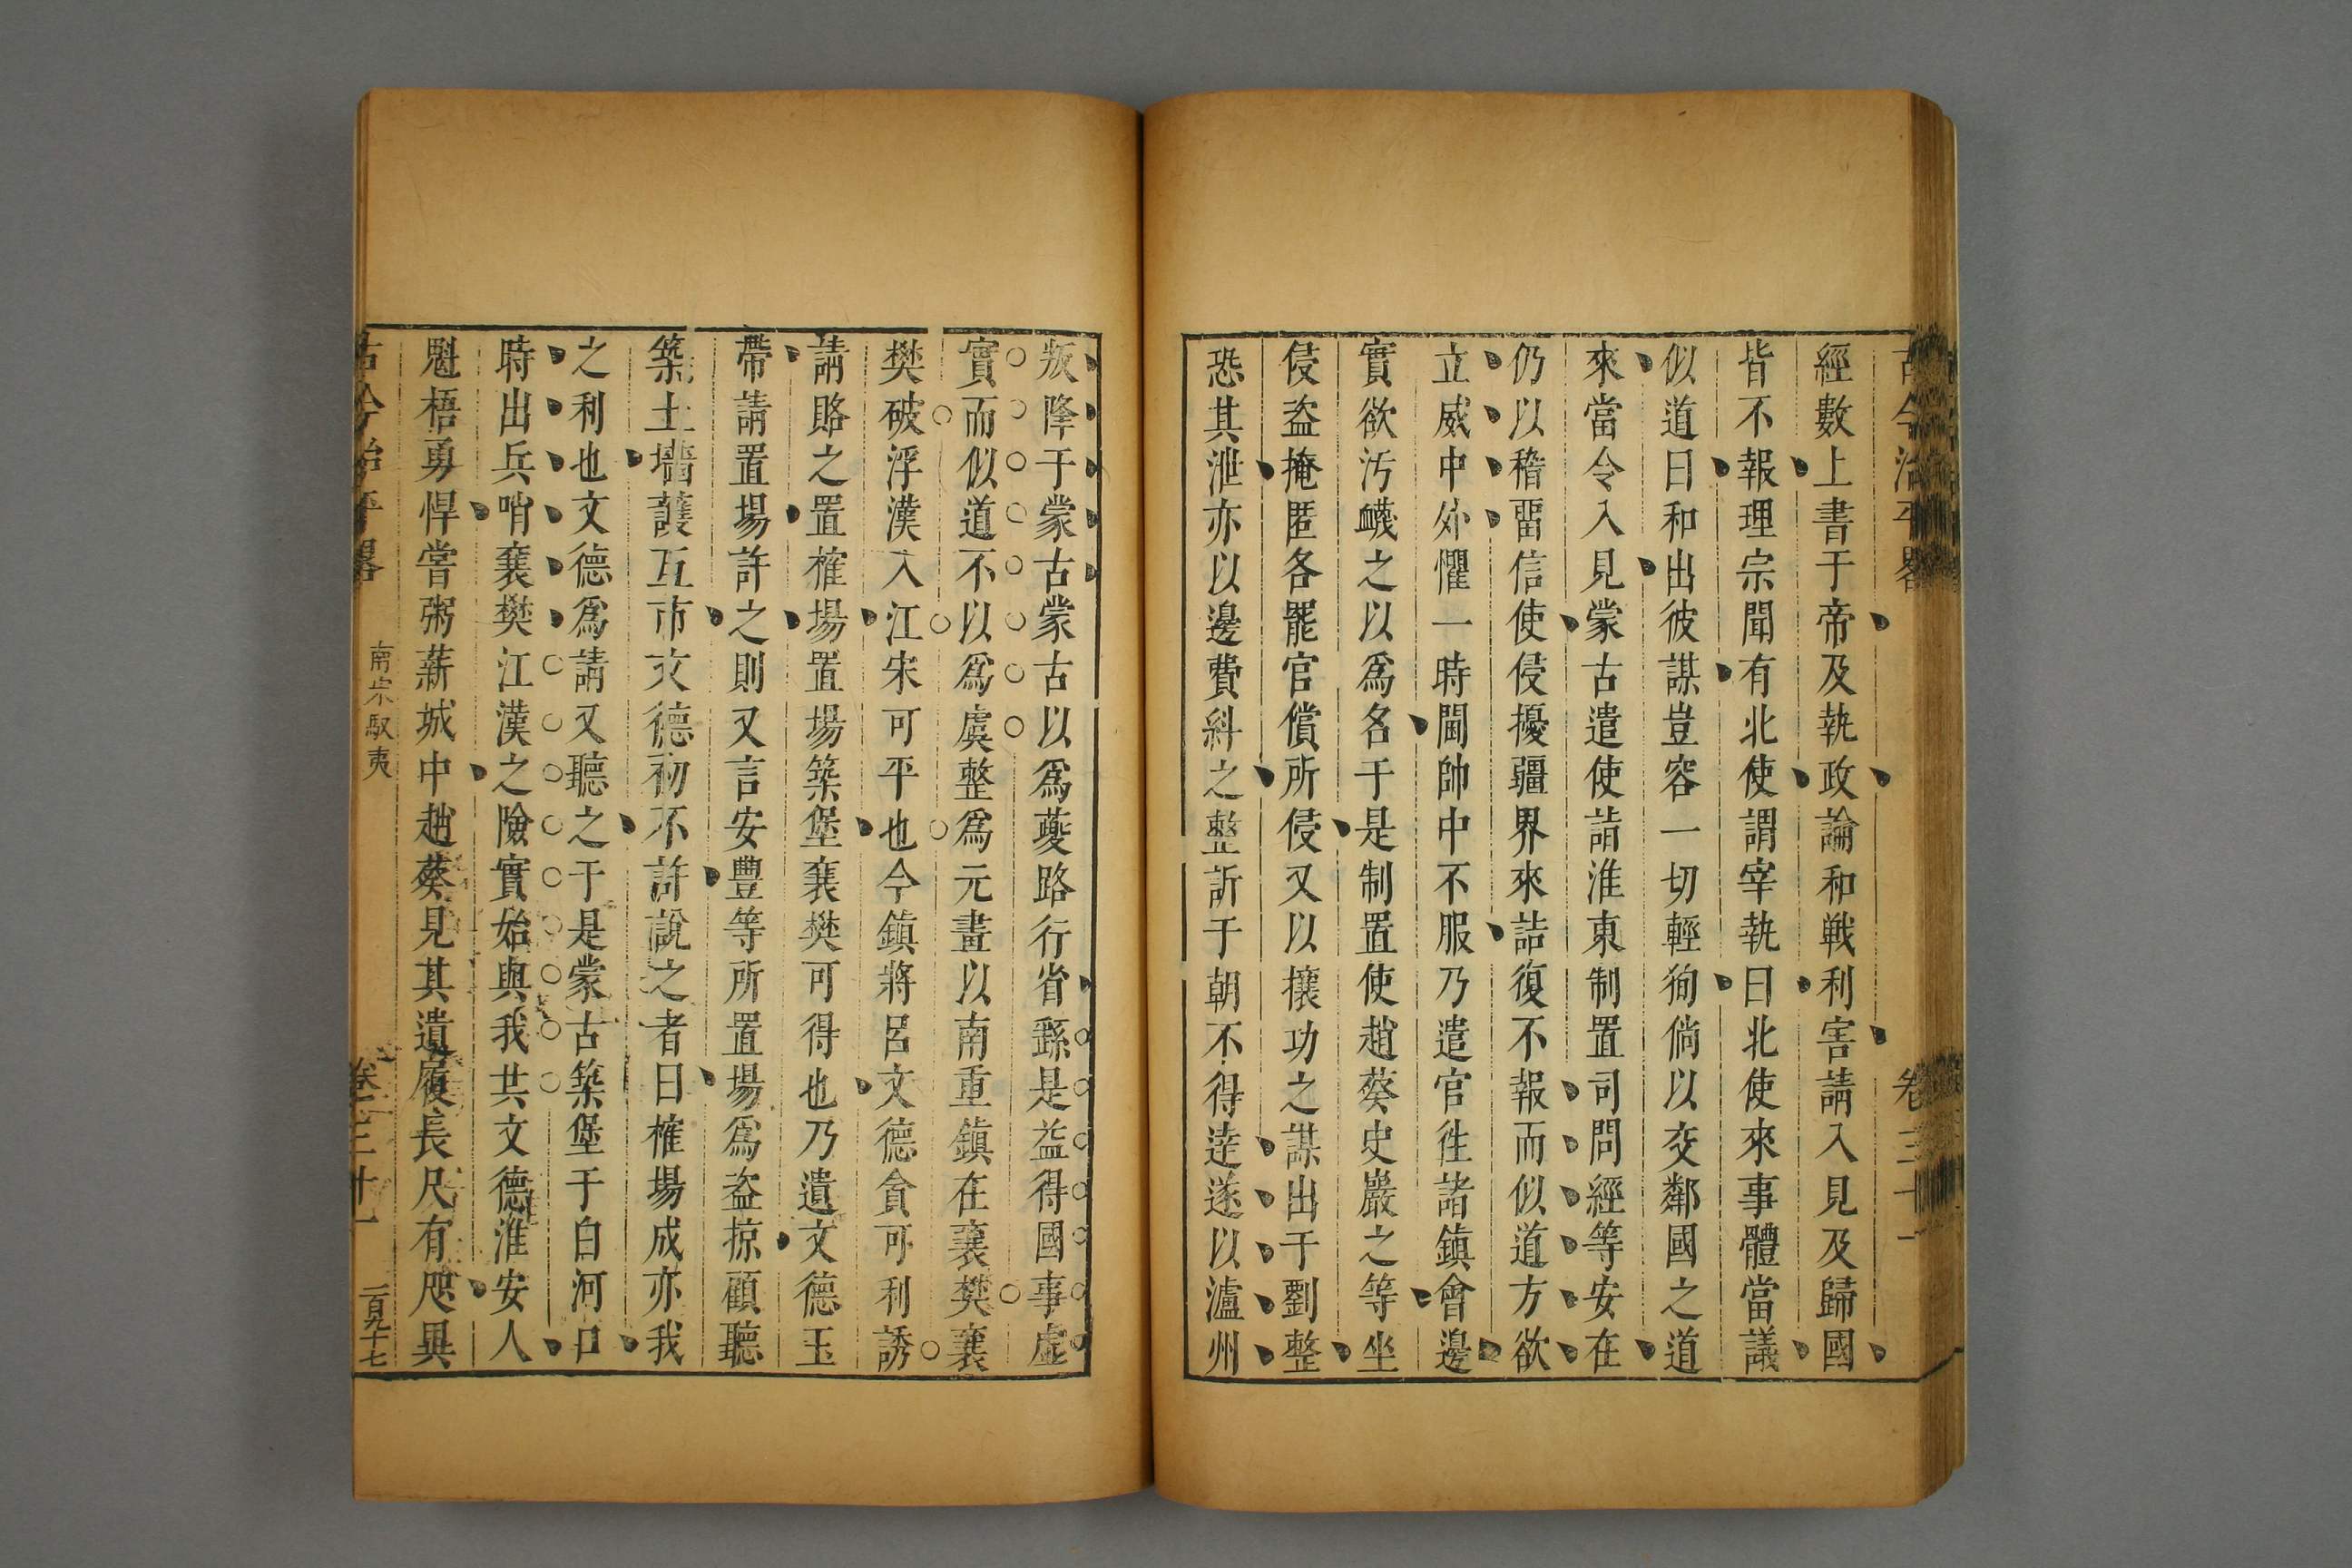 古今治平畧 卷三十一
經數上書于帝及執政論和戰利害請入見及歸國
皆不報理宗聞有北使謂宰執曰北使來事體當議
似道曰和出彼謀豈容一切輕徇倘以交鄰國之道
來當令入見蒙古遣使詣淮東制置司問經等安在
仍以稽畱信使侵擾疆界來詰復不報而似道方欲
立威中外懼一時閫帥中不服乃遣官徃諸鎮會邊
實欲汚衊之以爲名于是制置使趙葵史巖之等坐
侵盗掩匿各罷官償所侵又以攘功之謀出于劉整
恐其泄亦以邊費糾之整訴于朝不得逹遂以瀘州
叛降于蒙古蒙古以爲夔路行省繇是益得國事虛
實而似道不以爲虞整爲元畫以南重鎮在襄樊襄
樊破浮漢入江宋可平也今鎮將呂文德貪可利誘
請賂之置榷場置場築堡襄樊可得也乃遺文德玉
帶請置場許之則又言安豐等所置場爲盗掠願聽
築土墻護互市文德初不許說之者曰榷場成亦我
之利也文德爲請又聽之于是蒙古築堡于白河口
時出兵哨襄樊江漢之險實始與我共文德淮安人
魁梧勇悍嘗鬻薪城中趙葵見其遺履長尺有咫異
古今治平畧 南宋馭夷 卷三十一 一百九十七